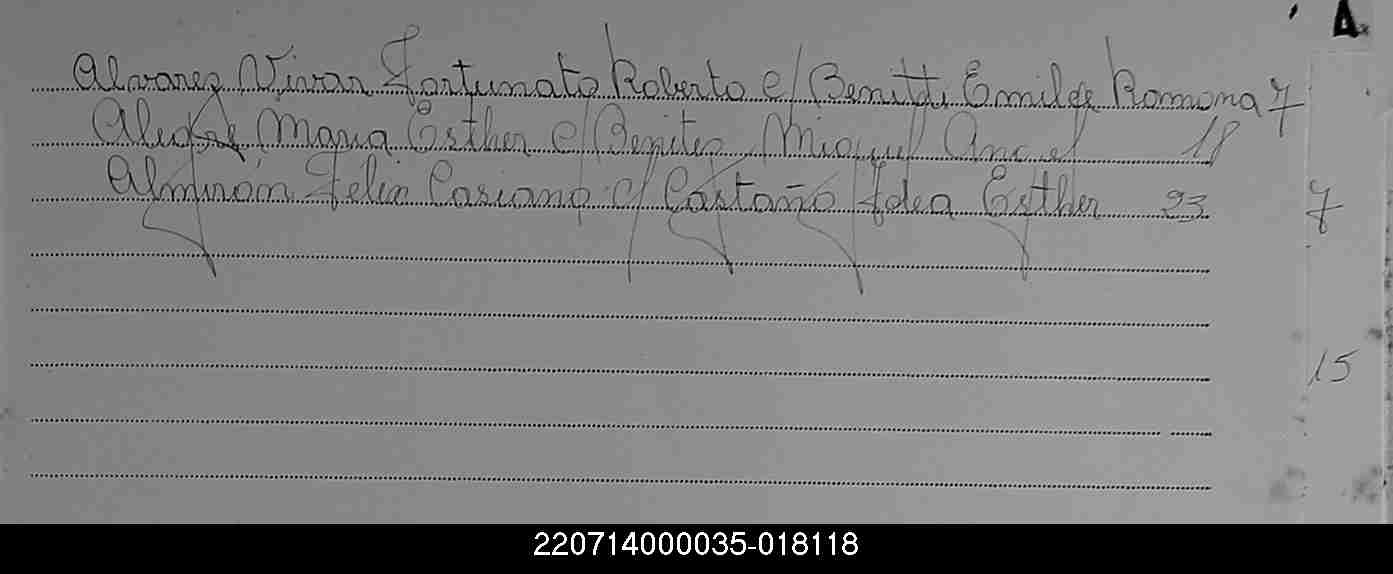 A.
Alvarez Vivar Fortunato Roberto c/ Benitti Emilce Ramona 7
Alegre Maria Esther c/ Benitez Miguel Angel 18
Almirón Felix Casiano c/ Castaño Idea Esther 23
7
15
220714000035-018118